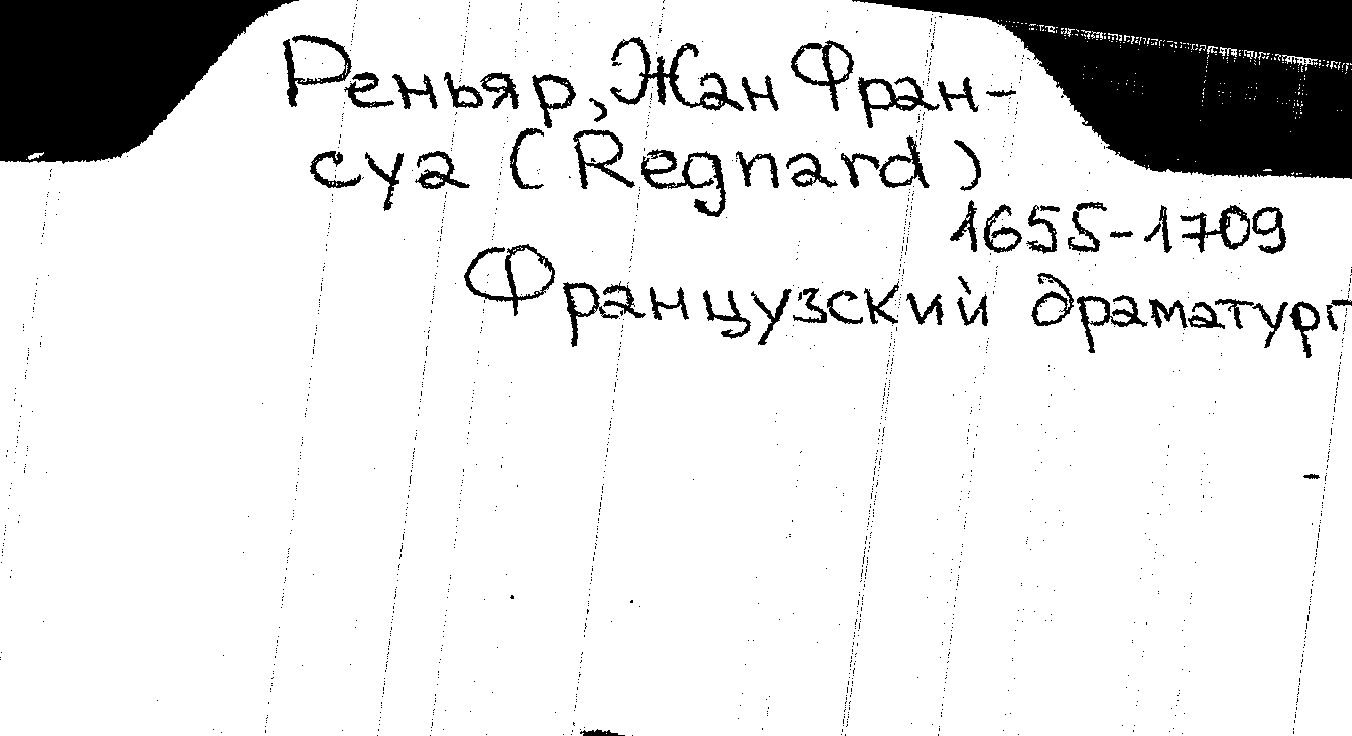 Реньяр, Жан Фран-
суа (Regnard)
1655-1709
Французский драматург